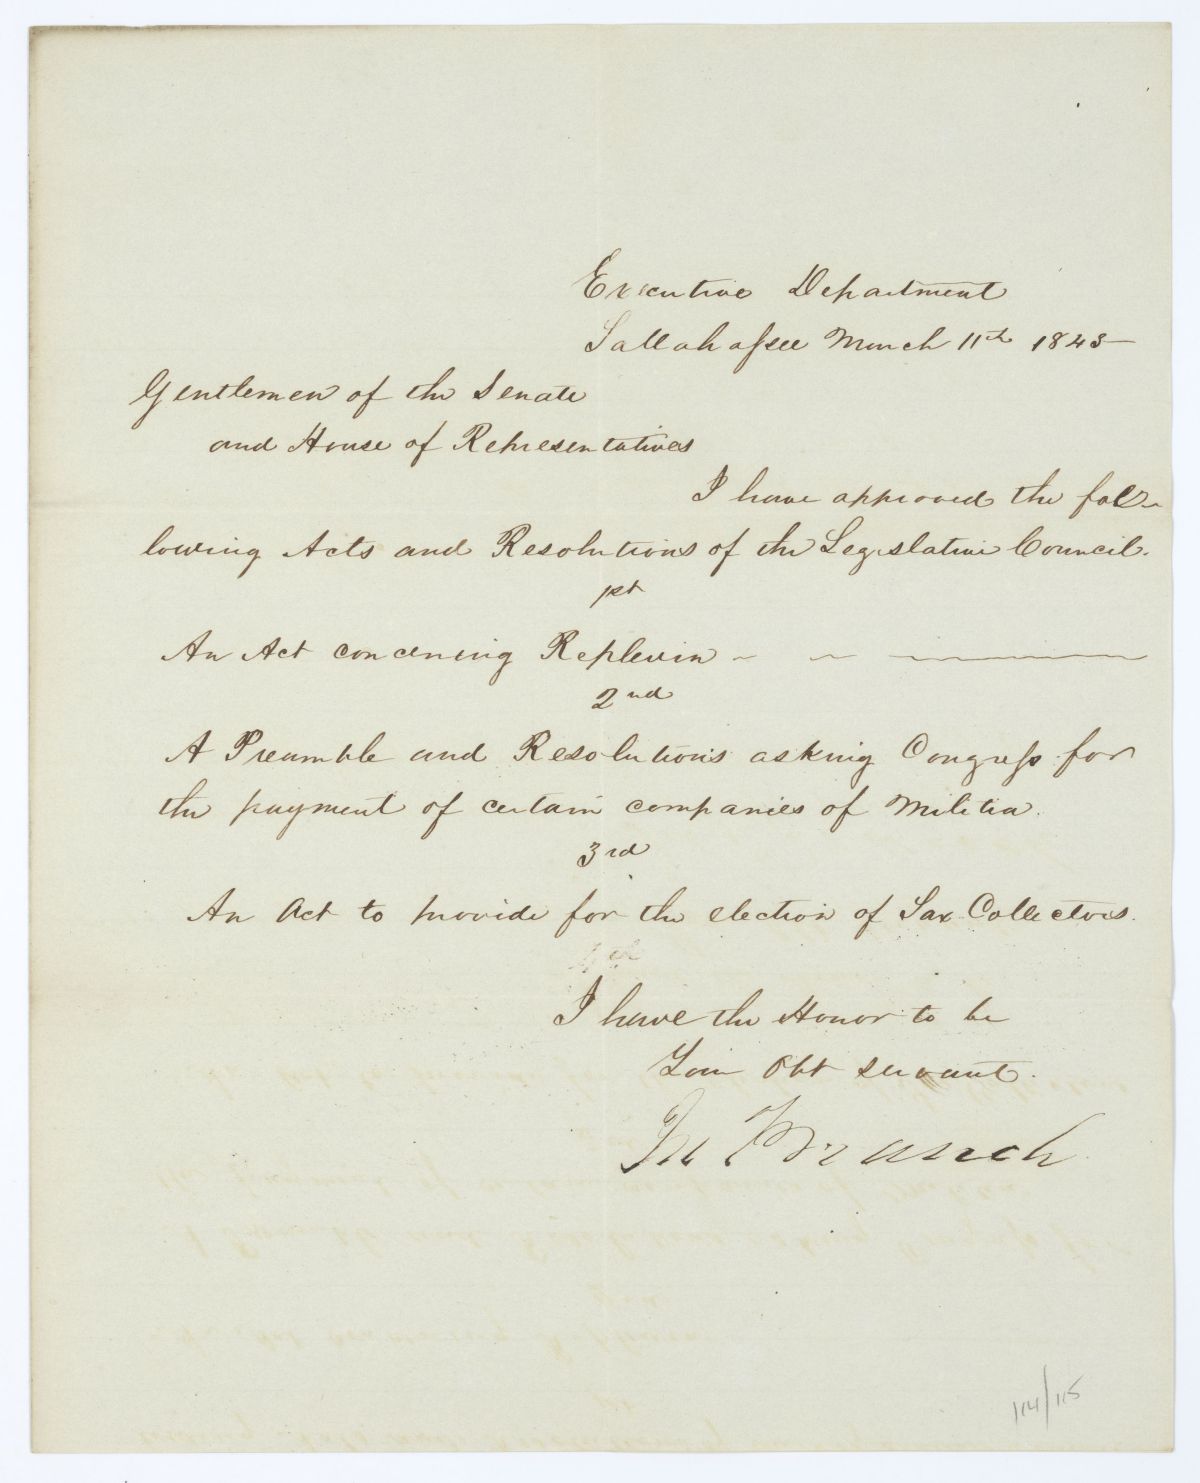 Executive Department
Tallahassee March 11th 1845
Gentlemen of the Senate
and House of Representatives
I have approved the fol-
lowing Acts and Resolutions of the Legislative Council.
1st
An Act concerning Replevin
2nd
A Preamble and Resolutions asking Congress for
the payment of certain companies of Militia.
3rd
An Act to provide for the election of Tax Collectors.
4th
I have the Honor to be
Your Obt servant.
Jno Branch
114/115